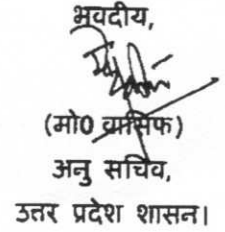 भवदीय,
(मो0 वासिफ)
अनु सचिव,
उत्तर प्रदेश शासन।